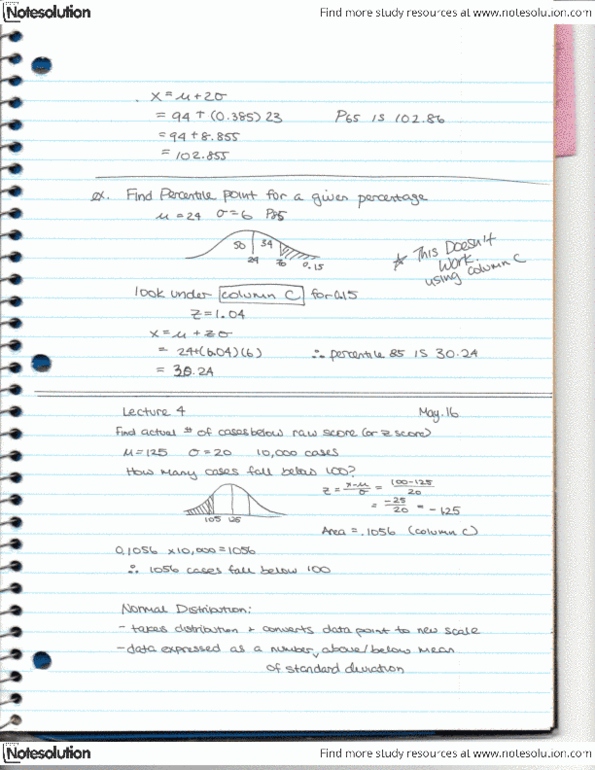 Notesolution
Find more study resources at www.notesolution.com
x = μ + zσ
= 94 + (0.385) 23
P65 is 102.86
= 94 + 8.855
= 102.855
ex. Find Percentile point for a given percentage
μ = 24 σ = 6 P85
50 34
24 0.15
★ This Doesn't
Work
using column C
look under column C for 0.15
Z = 1.04
x = μ + zσ
= 24+(1.04)(6)
∴ percentile 85 is 30.24
= 30.24
Lecture 4
May. 16
Find actual # of cases below raw score (or z score)
μ = 125 σ = 20 10,000 cases
How many cases fall below 100?
z = x-μ/σ = 100-125/20
= -25/20 = -1.25
105 125
Area = .1056 (column C)
0.1056 x 10,000 = 1056
∴ 1056 cases fall below 100
Normal Distribution:
- takes distribution + converts data point to new scale
- data expressed as a number, above/below mean
of standard deviation
Notesolution
Find more study resources at www.notesolution.com